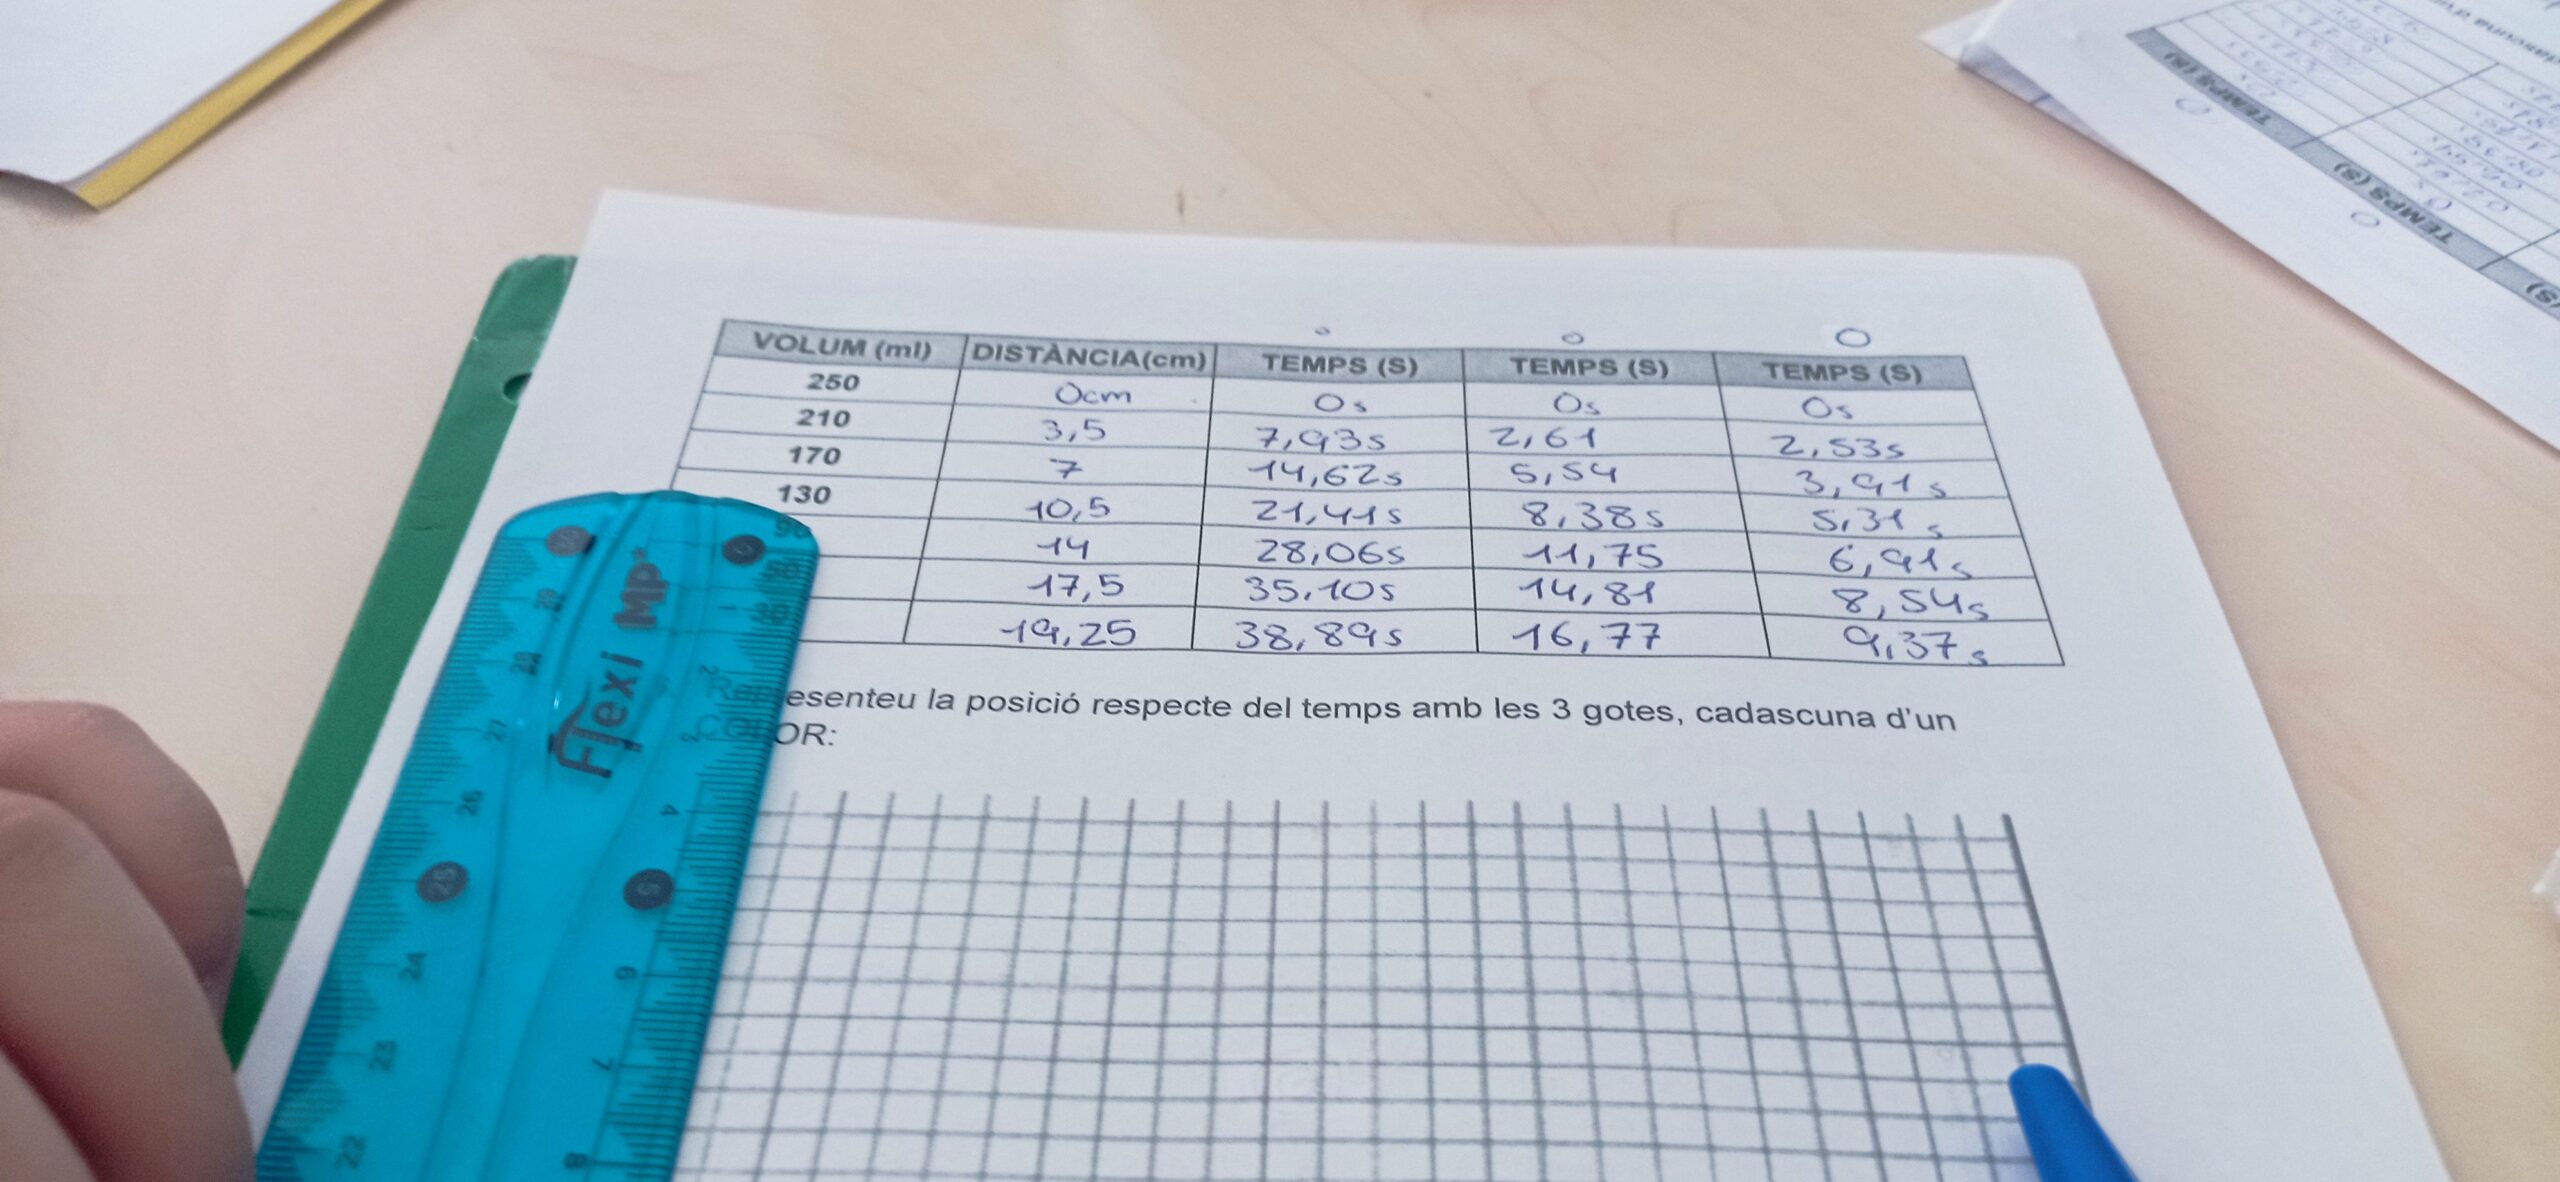 VOLUM (ml) DISTÀNCIA(cm) TEMPS (S) TEMPS (S) TEMPS (S)
250 0cm 0s 0s 0s
210 3,5 7,93s 2,61 2,53s
170 7 14,62s 5,54 3,91s
130 10,5 21,41s 8,38s 5,31s
14 28,06s 11,75 6,91s
17,5 35,10s 14,81 8,54s
19,25 38,89s 16,77 9,37s
Representeu la posició respecte del temps amb les 3 gotes, cadascuna d'un
COLOR:
Flexi MP
0 2 4 5 6 7 8
29 28 27 26 25 24 23 22
TEMPS (S)
TEMPS (S)